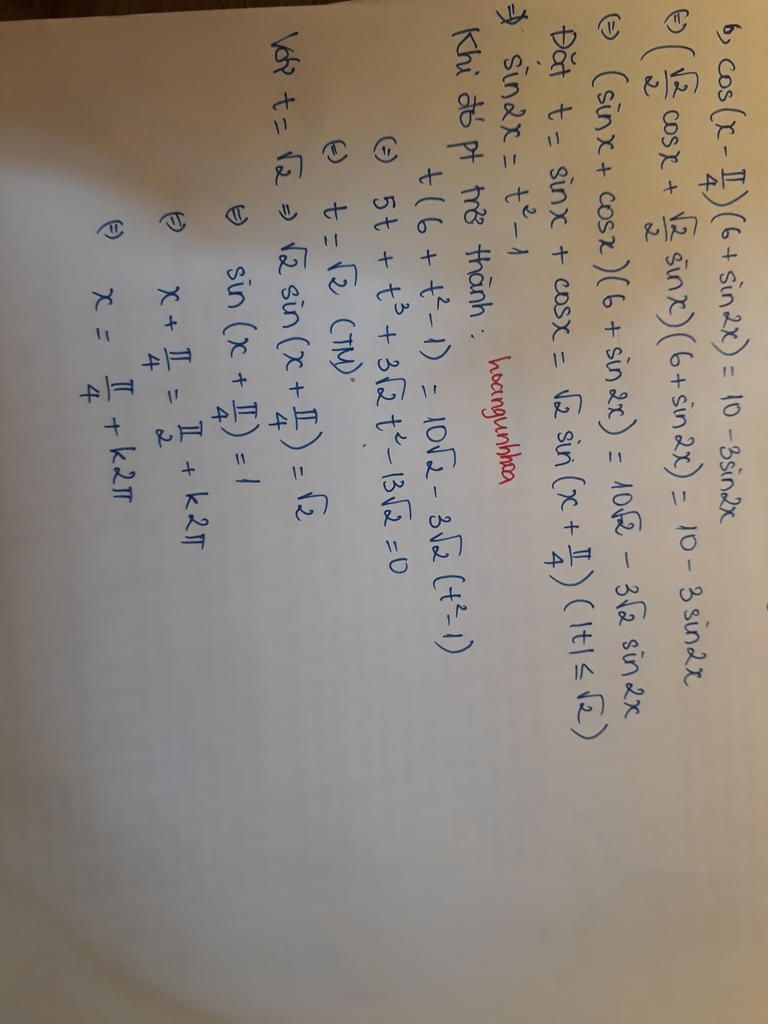 b, cos(x - π/4)(6 + sin2x) = 10 - 3sin2x
(=) (√2/2 cosx + √2/2 sinx)(6 + sin2x) = 10 - 3sin2x
(=) (sinx + cosx)(6 + sin2x) = 10√2 - 3√2 sin2x
Đặt t = sinx + cosx = √2 sin(x + π/4) (|t| ≤ √2)
=> sin2x = t² - 1
Khi đó pt trở thành: hoangunhhoa
t(6 + t² - 1) = 10√2 - 3√2 (t² - 1)
(=) 5t + t³ + 3√2 t² - 13√2 = 0
(=) t = √2 (TM).
Với t = √2 => √2 sin(x + π/4) = √2
(=) sin(x + π/4) = 1
(=) x + π/4 = π/2 + k2π
(=) x = π/4 + k2π